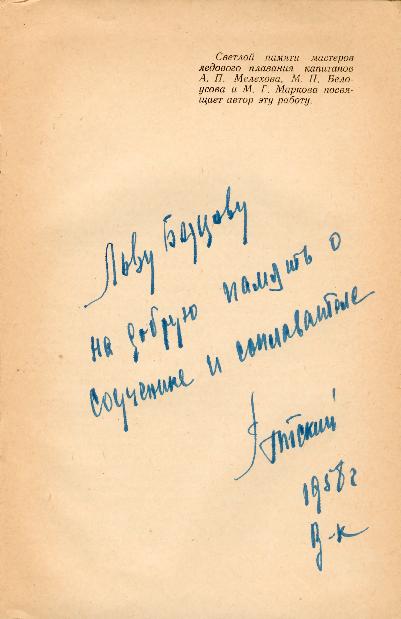 Светлой памяти мастеров
ледового плавания капитанов
А. П. Мелехова, М. П. Бело-
усова и М. Г. Маркова посвя-
щает автор эту работу.
Льву
на добрую память о
соученике и соплавателе
1958 г
В-к